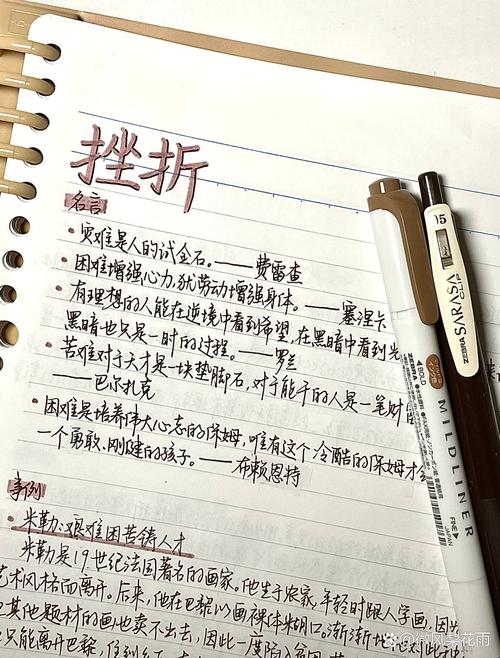 挫折
名言
· 灾难是人的试金石。——费雷查
· 困难增强心力,犹劳动增强身体。——塞涅卡
· 有理想的人能在逆境中看到希望,在黑暗中看到光
黑暗也只是一时的过程。——罗兰
· 苦难对于天才是一块垫脚石,对于能干的人是一笔财
——巴尔扎克
· 困难是培养伟大心志的保姆,唯有这个冷酷的保姆才会
一个勇敢、刚健的孩子。——布赖恩特
事例
· 米勒:艰难困苦铸人才
米勒是19世纪法国著名的画家。他生于农家,年轻时跟人学画,因为
艺术风格而离开。后来,他在巴黎以画裸体糊口。渐渐地,他对此
其他题材的画也卖不出去,因此一度陷入
只能离开巴黎,住到
0.5
ZEBRA SARASA CLIP
MILDLINER
BOLD
FINE
JAPAN
ZEBRA
@微风梨花雨